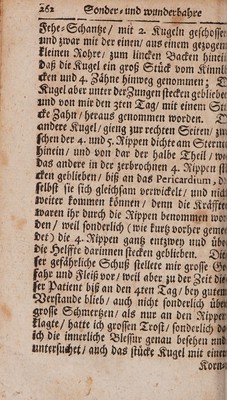 262 Sonder- und wunderbahre
Fehe-Schantze/ mit 2. Kugeln geschossen
und zwar mit der einen/ aus einem gezogen
kleinen Rohr/ zum lincken Backen hinein
daß die Kugel ein groß Stück vom Kinnb
cken und 4. Zähne hinweg genommen; D
Kugel aber unter der Zungen stecken geblieben
und von mir den 2ten Tag/ mit einem Stü
cke Zahn/ heraus genommen worden. D
andere Kugel/ gieng zur rechten Seiten/ zwi
schen der 4. und 5. Rippen dichte am Sternu
hinein/ und von dar der halbe Theil/ wo
das andere in der zerbrochnen 4. Rippen ste
cken geblieben/ biß an das Pericardium, d
selbst sie sich gleichsam verwickelt/ und nich
weiter kommen können/ denn die Kräffte
waren ihr durch die Rippen benommen wor
den/ weil sonderlich (wie kurtz vorher gemel
det) die 4. Rippen gantz entzwey und übe
die Helffte darinnen stecken geblieben. Die
ser gefährliche Schuß stellete mir grosse Ge
fahr und Fleiß vor/ weil aber zu der Zeit die
ser Patient biß an den 4ten Tag/ bey gutem
Verstande blieb/ auch nicht sonderlich übe
grosse Schmertzen/ als nur an den Rippen
klagte/ hatte ich grossen Trost/ sonderlich da
ich die innerliche Blessur genau besehen und
untersuchet/ auch das stücke Kugel mit einer
Korn-